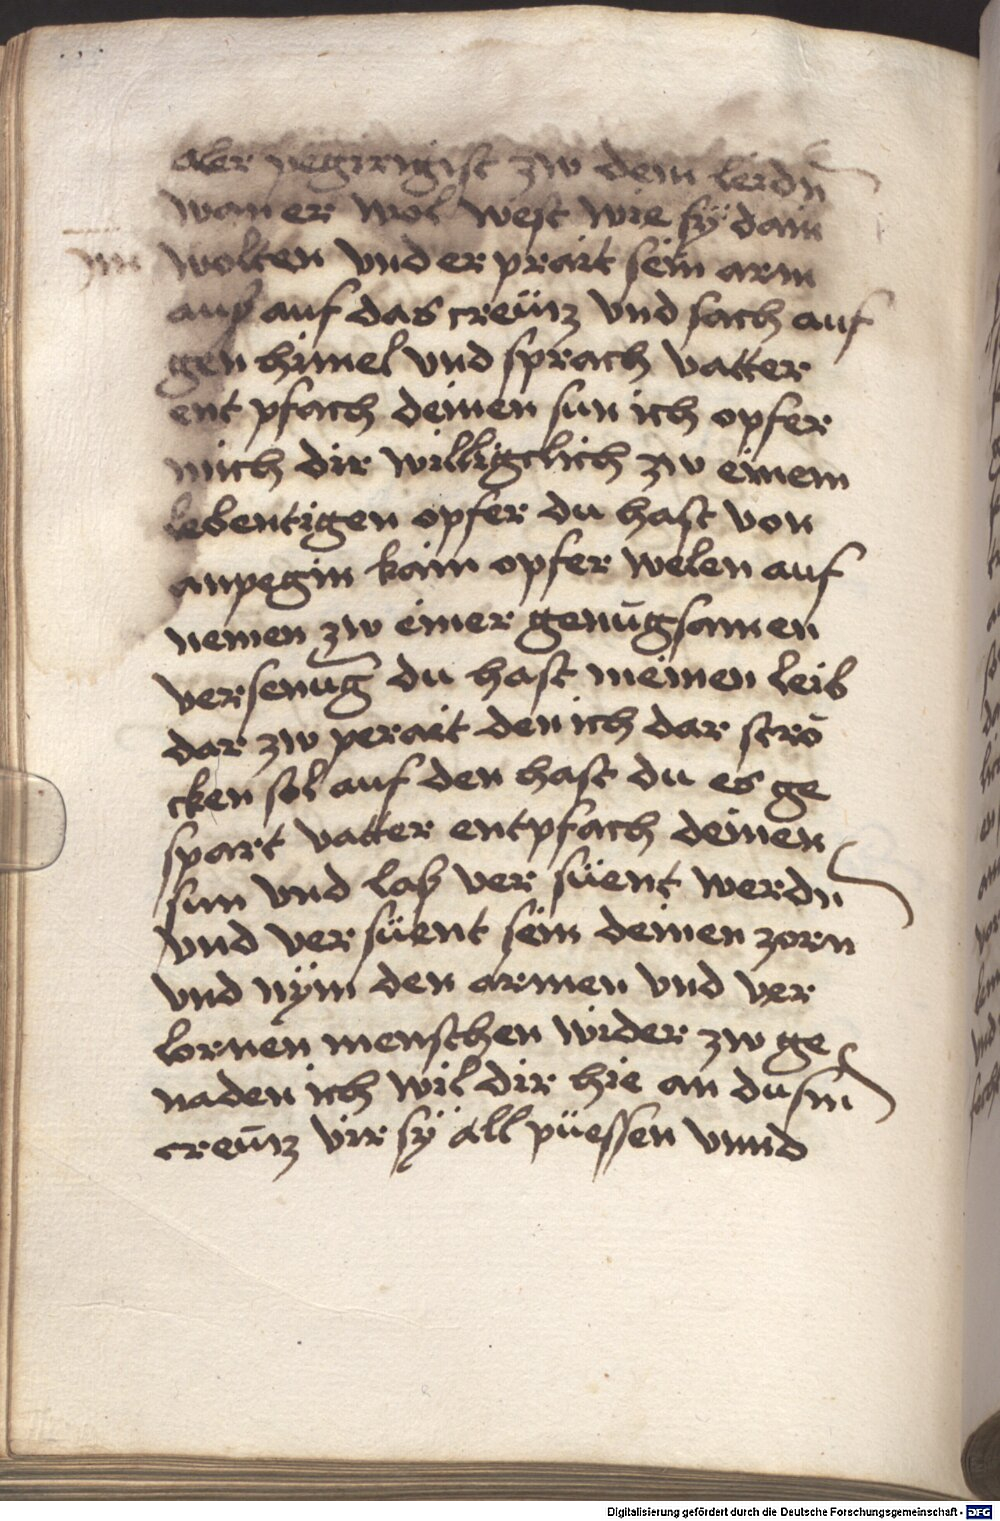 aler pegirigist zw dem leidn
wan er wol west wie sÿ dain
im wolten vnd er prait sein arm
auß auf das creütz vnd sach auf
gen himel vnd sprach vatter
ent pfach deinen sun ich opfer
mich dir willigclich zw einem
lebentigen opfer du hast von
anpegin kain opfer welen auf
nemen zw einer genŭgsamen
versenug du hast meinen leib
dar zw perait den ich dar strö
cken sol auf den hast du es ge
spart vatter entpfach deinen
sun vnd laß ver süent werdn
vnd ver süent sein deinen zorn
vnd nÿm den armen vnd ver
lornen menschen wider zw ge
naden ich wil dir hie an dusm
creŭtz vir sÿ all püessen vnnd
Digitalisierung gefördert durch die Deutsche Forschungsgemeinschaft - DFG